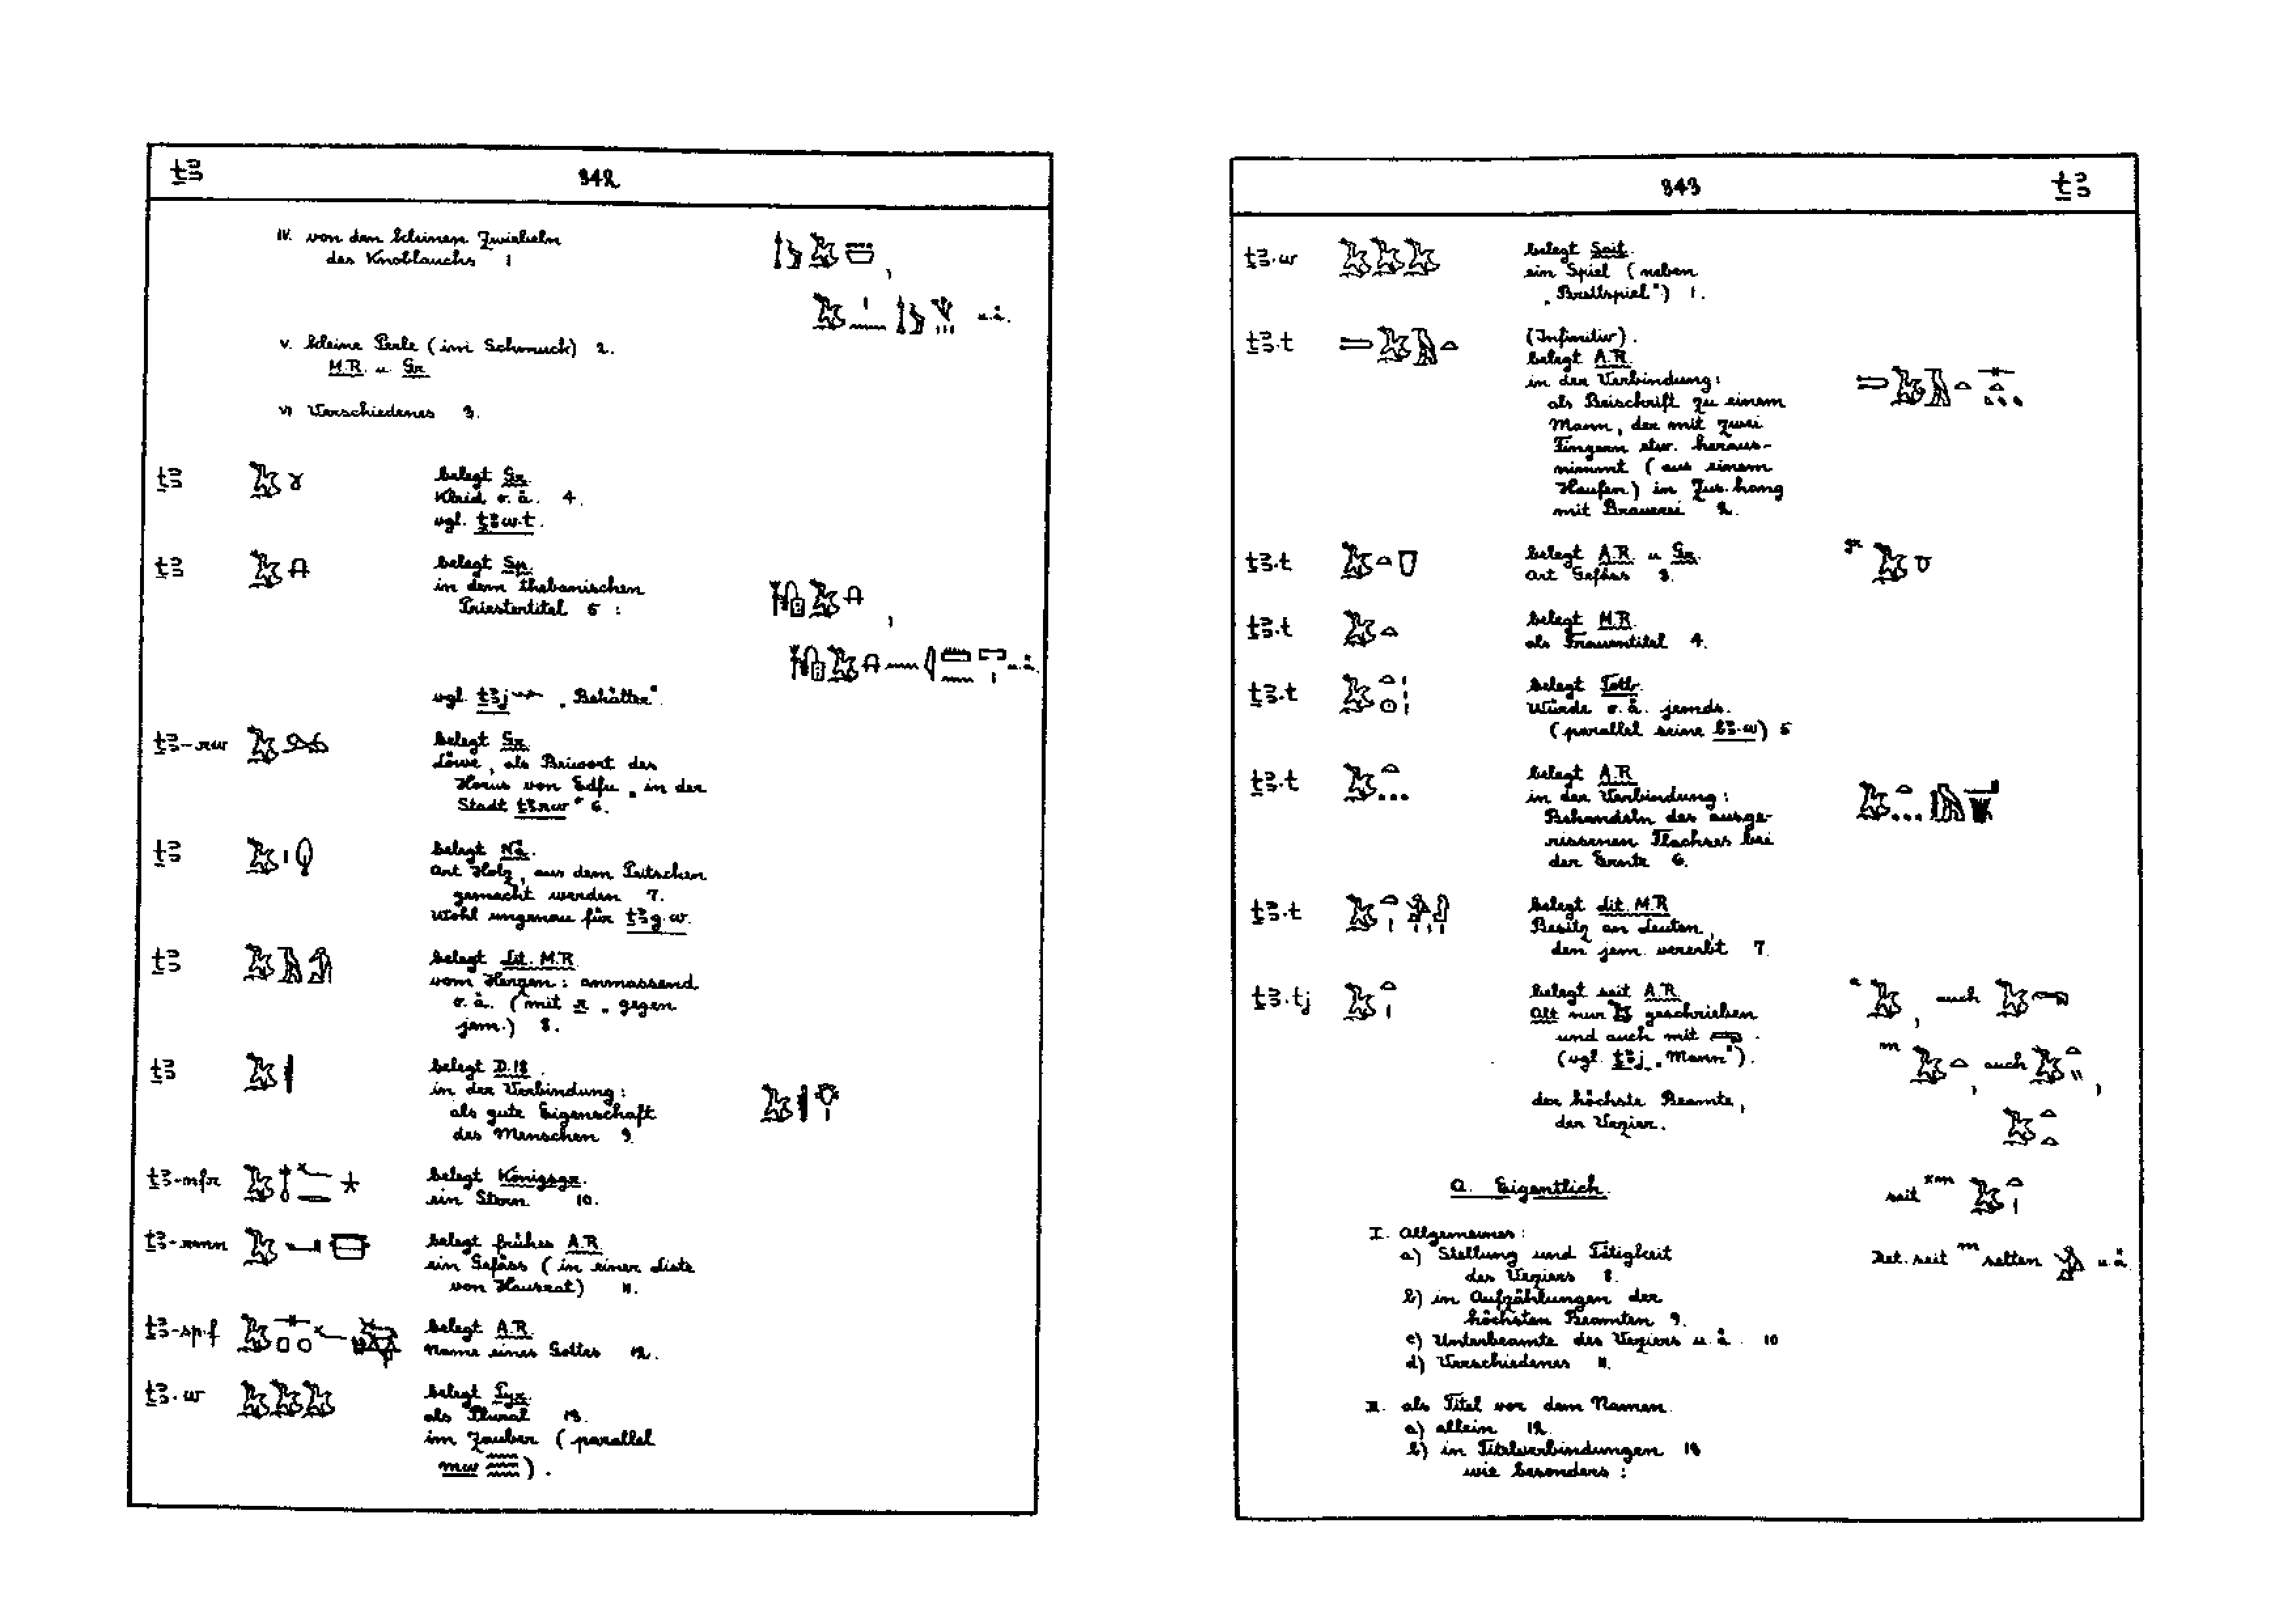 ṯꜣ 342
IV. von den kleinen Zwiebeln
des Knoblauchs 1
u.ä.
V. kleine Perle (im Schmuck) 2.
M.R. u. Gr.
VI Verschiedenes 3.
ṯꜣ belegt Gr.
Kleid o.ä. 4.
vgl. ṯꜣw.t.
ṯꜣ belegt Sp.
in dem thebanischen
Priestertitel 5 :
u.ä.
vgl. ṯꜣj „Behälter".
ṯꜣ-rw belegt Gr.
Löwe, als Beiwort des
Horus von Edfu „in der
Stadt ṯꜣrw" 6.
ṯꜣ belegt Nä.
Art Holz, aus dem Peitschen
gemacht werden 7.
Wohl ungenau für ṯꜣg.w.
ṯꜣ belegt Lit. M.R.
vom Herzen: anmassend
o.ä. (mit r „gegen
jem.) 8.
ṯꜣ belegt D.18.
in der Verbindung:
als gute Eigenschaft
des Menschen 9.
ṯꜣ-nfr belegt Königsgr.
ein Stern 10.
ṯꜣ-rmn belegt frühes A.R.
ein Gefäss (in einer Liste
von Hausrat) 11.
ṯꜣ-sp.f belegt A.R.
Name eines Gottes 12.
ṯꜣ.w belegt Pyr.
als Plural 13.
im Zauber (parallel
mw).
343 ṯꜣ
ṯꜣ.w belegt Sait.
ein Spiel (neben
„Brettspiel") 1.
ṯꜣ.t (Infinitiv).
belegt A.R.
in der Verbindung:
als Beischrift zu einem
Mann, der mit zwei
Fingern etw. heraus-
nimmt (aus einem
Haufen) in Zus.hang
mit Brauerei 2.
ṯꜣ.t belegt A.R. u Gr. gr
Art Gefäss 3.
ṯꜣ.t belegt M.R.
als Frauentitel 4.
ṯꜣ.t belegt Totb.
Würde o.ä. jemds.
(parallel seine bꜣ.w) 5
ṯꜣ.t belegt A.R.
in der Verbindung:
Behandeln des ausge-
rissenen Flachses bei
der Ernte 6.
ṯꜣ.t belegt Lit. M.R
Besitz an Leuten,
den jem. vererbt 7.
ṯꜣ.tj belegt seit A.R. a, auch
Alt nur geschrieben
und auch mit.
(vgl. ṯꜣj „Mann"). m, auch,
der höchste Beamte,
der Vezier.
A. Eigentlich. seit
I. Allgemeines:
a) Stellung und Tätigkeit Det. seit m selten u.ä.
des Veziers 8.
b) in Aufzählungen der
höchsten Beamten 9.
c) Unterbeamte des Veziers u.ä. 10
d) Verschiedenes 11.
II. als Titel vor dem Namen.
a) allein 12.
b) in Titelverbindungen 13
wie besonders :